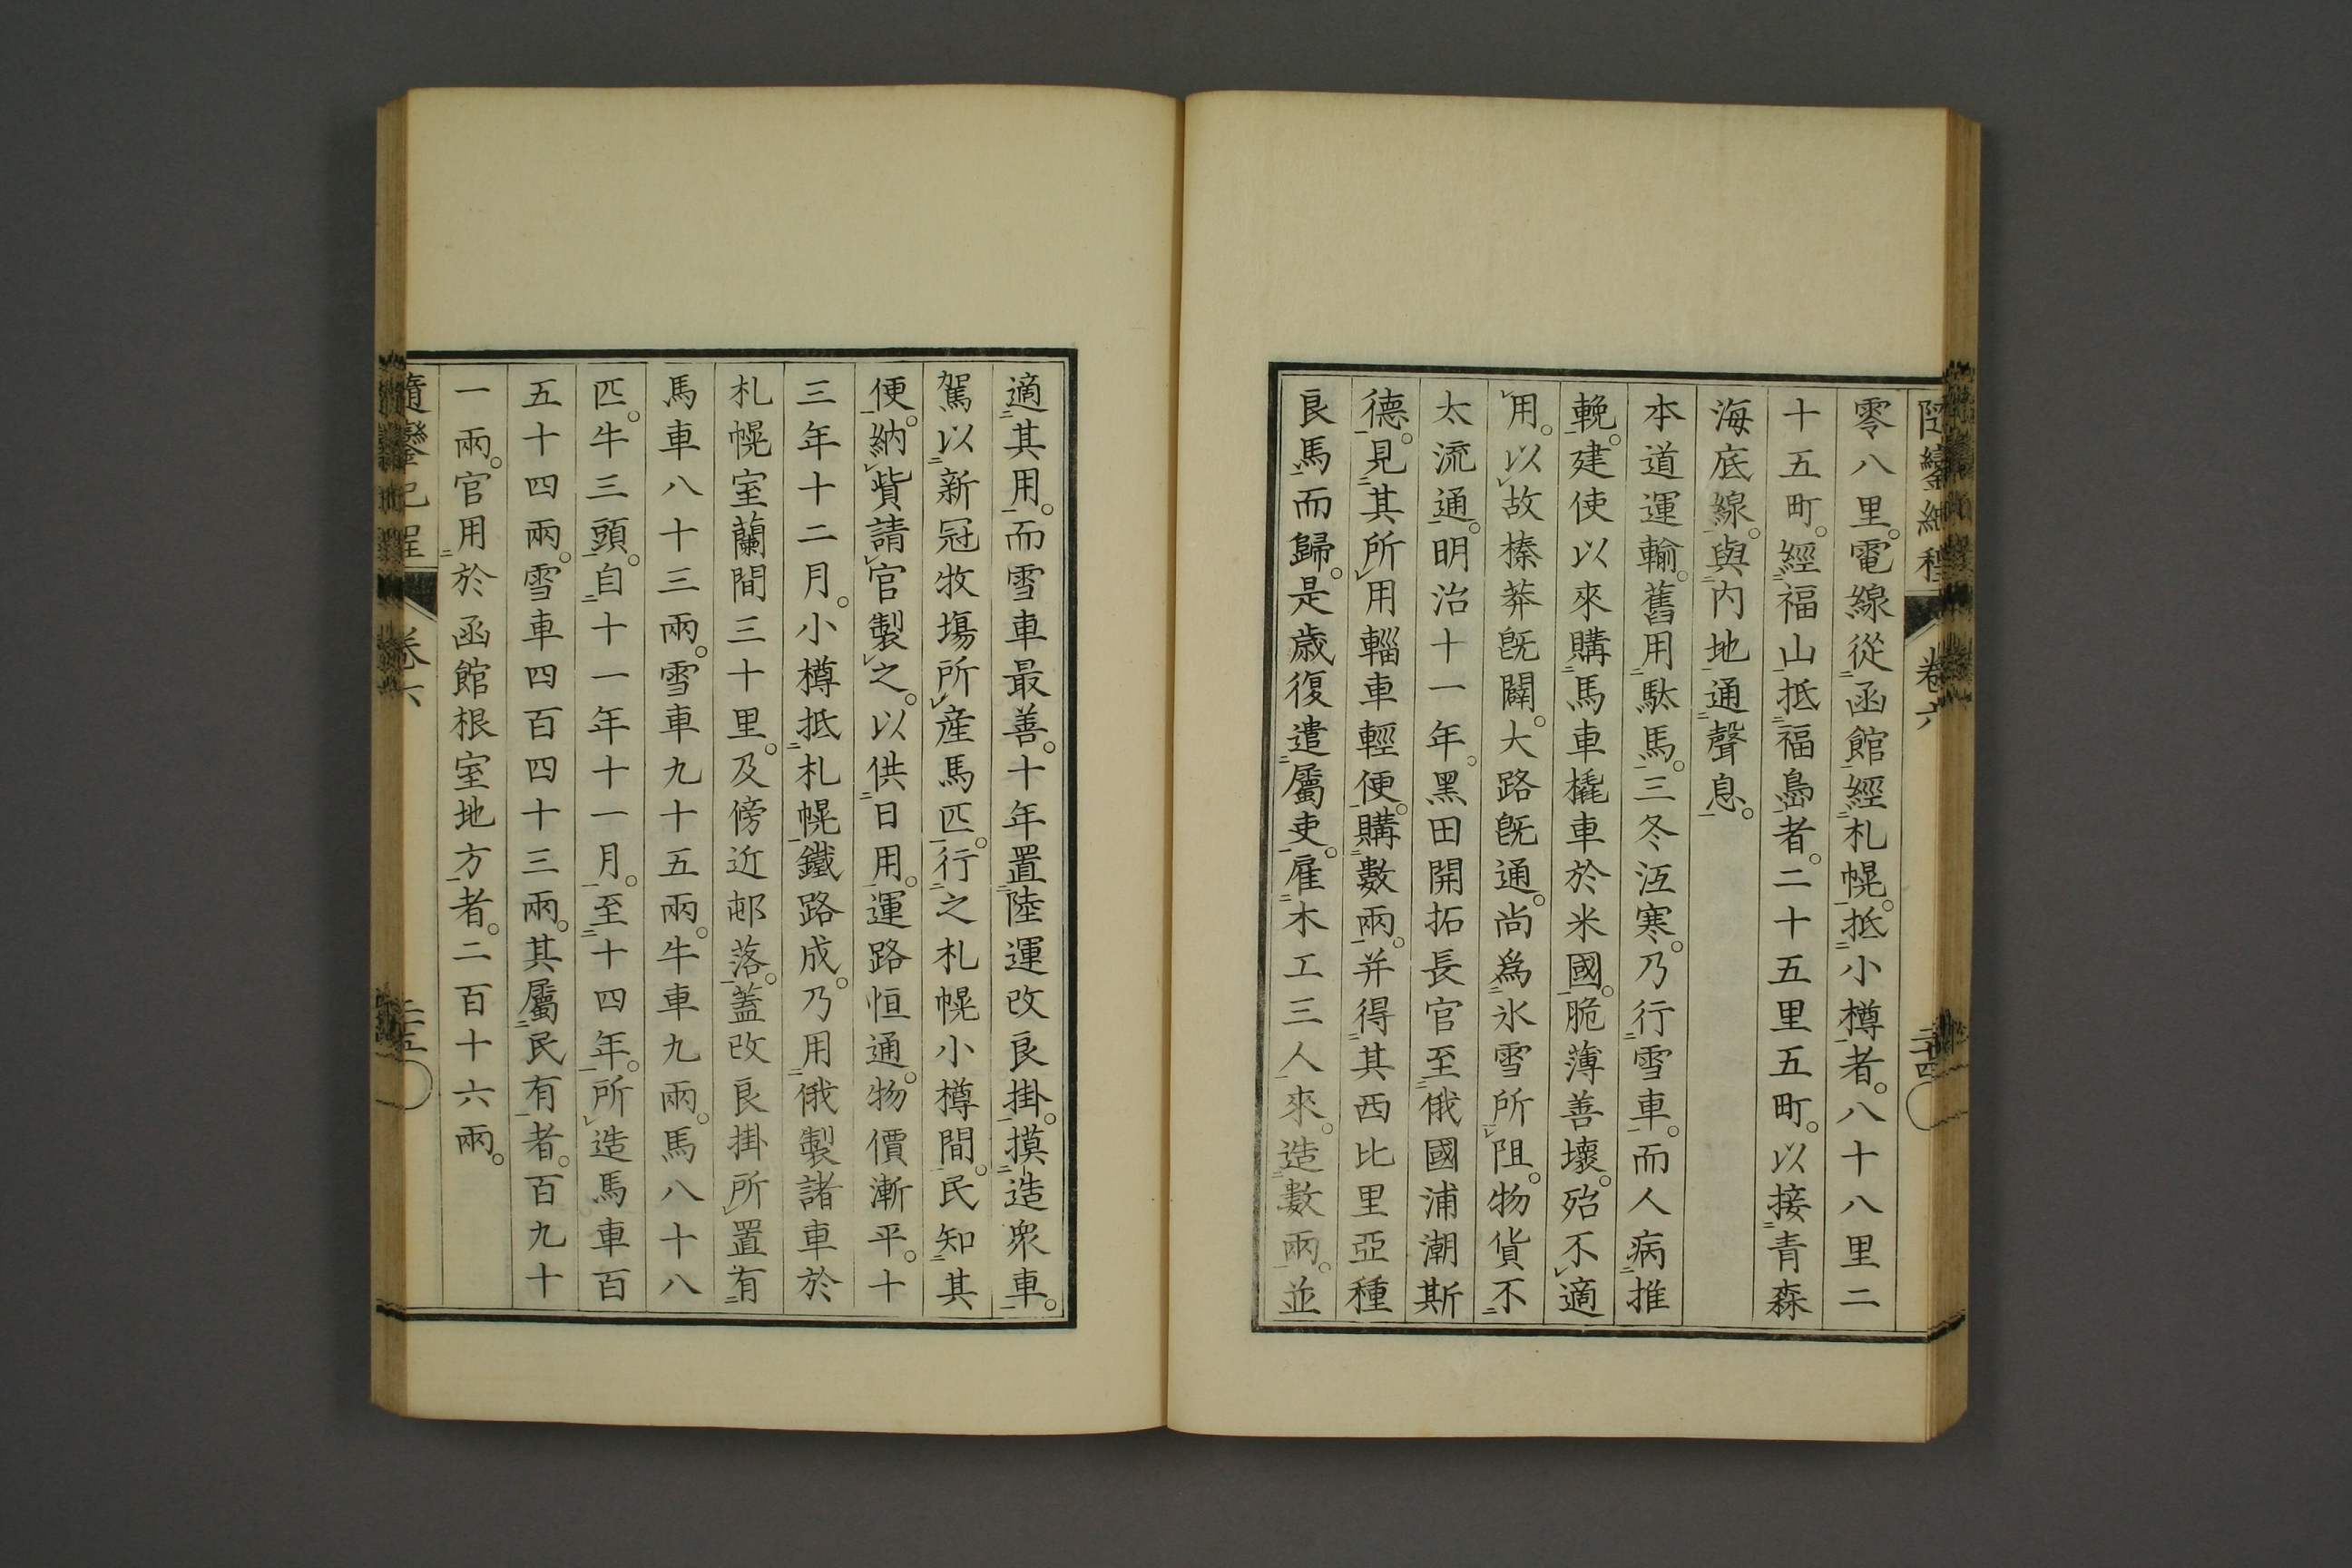 隨鑾紀程 卷六 二十四
零八里。電線從函館經札幌。抵小樽者。八十八里二
十五町。經福山抵福島者。二十五里五町。以接青森
海底線。與內地通聲息。
本道運輸。舊用駄馬。三冬沍寒。乃行雪車。而人病推
輓。建使以來購馬車橇車於米國。脆薄善壞。殆不適
用。以故榛莽旣闢。大路旣通。尚爲氷雪所阻。物貨不
太流通。明治十一年。黑田開拓長官至俄國浦潮斯
德。見其所用輜車輕便。購數兩。并得其西比里亞種
良馬而歸。是歲復遣屬吏。雇木工三人來。造數兩。並
適其用。而雪車最善。十年置陸運改良掛。摸造衆車。
駕以新冠牧場所產馬匹。行之札幌小樽間。民知其
便。納貲請官製之。以供日用。運路恒通。物價漸平。十
三年十二月。小樽抵札幌鐵路成。乃用俄製諸車於
札幌室蘭間三十里。及傍近邨落。蓋改良掛所置有
馬車八十三兩。雪車九十五兩。牛車九兩。馬八十八
匹。牛三頭。自十一年十一月。至十四年。所造馬車百
五十四兩。雪車四百四十三兩。其屬民有者。百九十
一兩。官用於函館根室地方者。二百十六兩。
隨鑾紀程 卷六 二十五